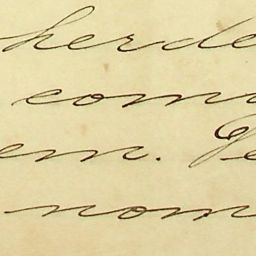 herde
com
em. Ve
nom